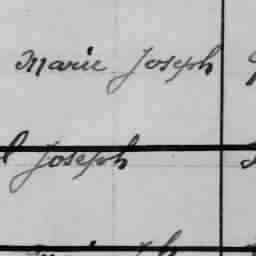 Marie Joseph
l Joseph